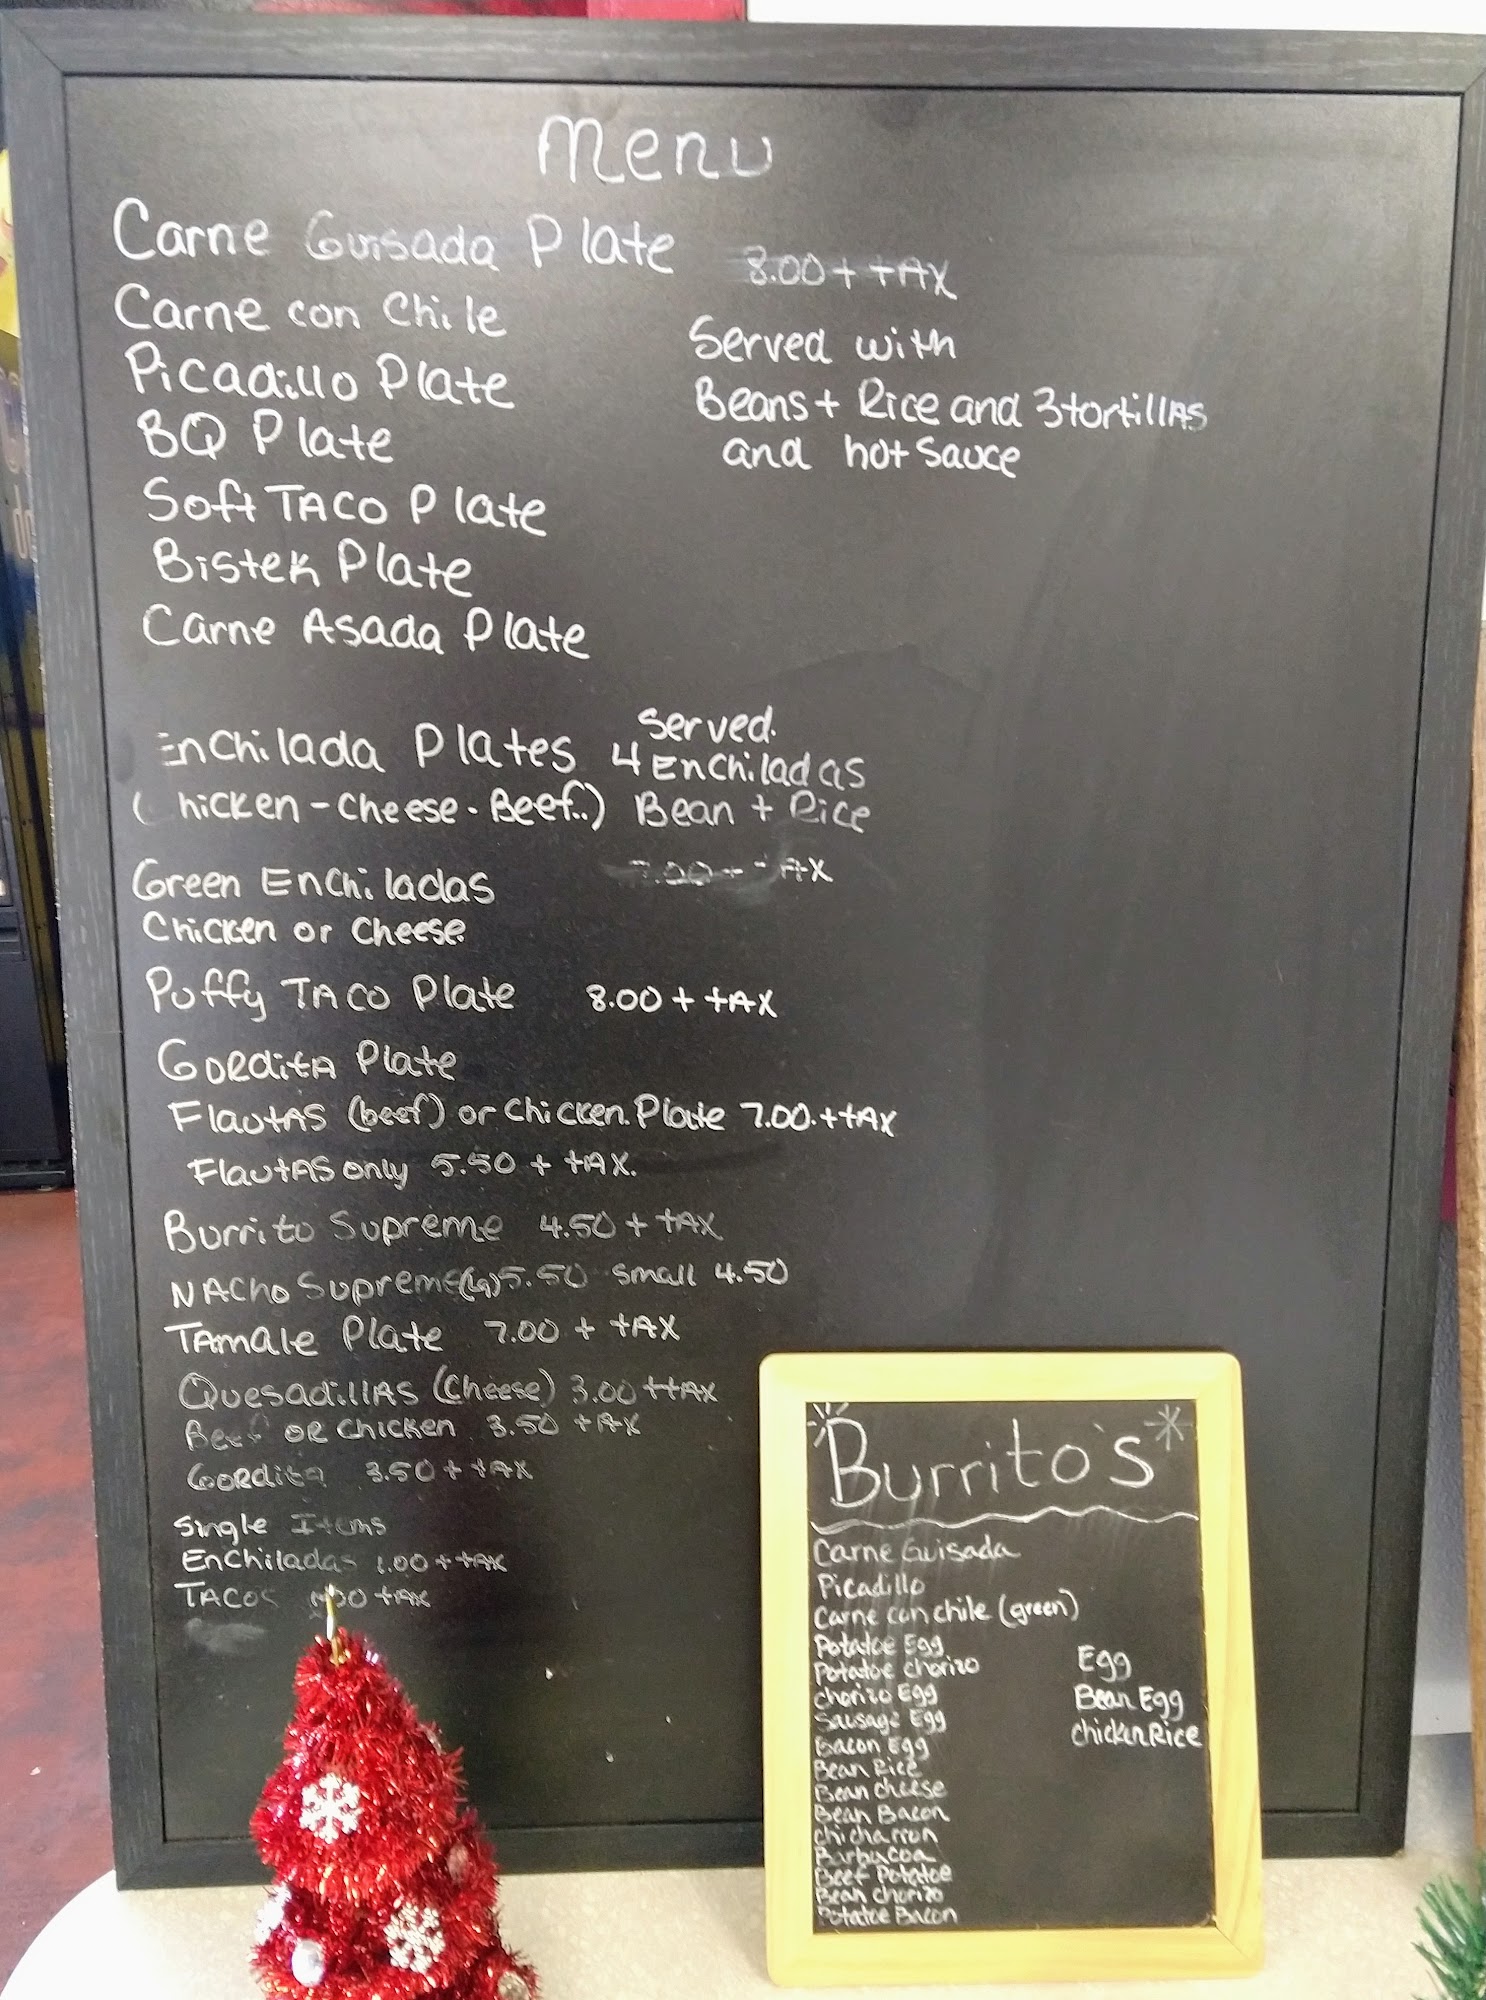 Menu
Carne Guisada Plate 8.00 + tAX
Carne con Chile
Served with
Picadillo Plate
Beans + Rice and 3 tortillAs
BQ Plate
and hot Sauce
Soft TACO Plate
Bistek Plate
Carne Asada Plate
Served.
EnChilada Plates 4 EnChiladas
( hicken - Cheese - Beef..) Bean + Rice
Green EnChiladas 7.00 + tAX
Chicken or Cheese
Puffy TACO Plate 8.00 + tAX
GORditA Plate
FlautAS (beef) or Chicken. Plate 7.00. + tAX
FlautAS only 5.50 + tAX.
Burrito Supreme 4.50 + tAX
NACho Supreme (Lg) 5.50 small 4.50
TAmale Plate 7.00 + tAX
QuesadillAS (Cheese) 3.00 + tAX
Beef OR Chicken 3.50 + tAX
GORdita 3.50 + tAX
Single Items
EnChiladas 1.00 + tAX
TACOS + tAX
Burrito's
Carne Guisada
Picadillo
Carne con chile (green)
Potatoe Egg
Potatoe chorizo
Chorizo Egg
Sausage Egg
Bacon Egg
Bean Rice
Bean cheese
Bean Bacon
chicharron
Barbacoa
Beef Potatoe
Bean chorizo
Potatoe Bacon
Egg
Bean Egg
chicken Rice